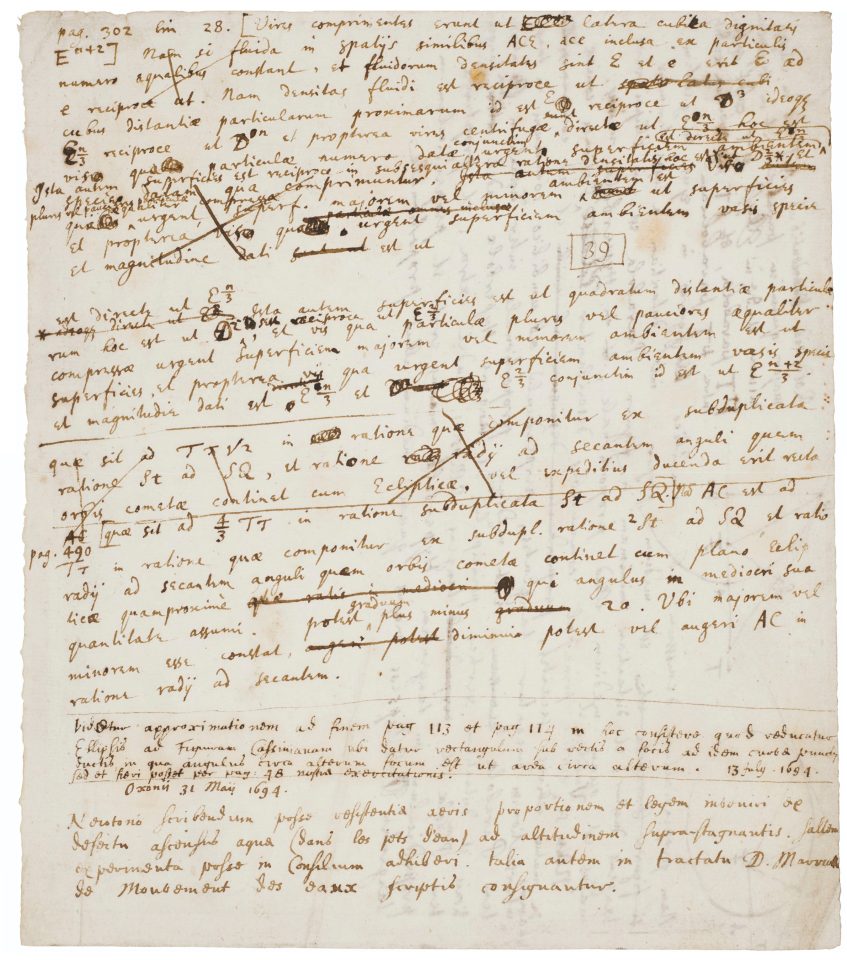 pag. 302 lin 28. [Vires comprimentes erunt ut latera cubica dignitatis
E^n+2] Nam si fluida in spatijs similibus ACE, ace inclusa ex particulis
numero æqualibus constant, et fluidorum densitates sint E et e erit E ad
e reciproce ut. Nam densitas fluidi est reciproce ut
cubus distantiæ particularum proximarum id est E reciproce ut D^3 ideoqe
E^n/3 reciproce ut D^n et propterea vires centrifugæ directe ut E^n/3 hoc est
particulæ numero datæ superficiem ambientem
Ista autem superficies est reciproce in subsesquialtera ratione densitatis hoc est
qua comprimuntur.
urgent superf. majorem vel minorem ut superficies
et propterea vis qua urgent superficiem ambientem vasis specie
et magnitudine dati est ut
39
est directe ut E^n/3
* Ista autem superficies est ut quadratum distantiæ particula
rum hoc est ut D^2 reciproce ut E^2/3, et vis qua particulæ pluris vel pauciores æqualiter
compressæ urgent superficiem majorem vel minorem ambientem est ut
superficies, et propterea vis qua urgent superficiem ambientem vasis specie
et magnitudine dati est E^n/3 et E^2/3 conjunctim id est ut E^n+2/3.
quæ sit ad T x √2 in ratione quæ componitur ex subduplicata
ratione St ad SQ, et ratione radij ad secantem anguli quem
orbis cometæ continet cum Eclipticæ, vel expeditius ducenda erit recta
[quæ sit ad 4/3 TT in ratione subduplicata St ad SQ. AC est ad
pag. 490
TT in ratione quæ componitur ex subdupl. ratione 2St ad SQ et ratio
radij ad secantem anguli quem orbis cometæ continet cum plano Eclip
ticæ quamproximè quæ ratio in mediocri qui angulus in mediocri sua
quantitate assumi potest graduum plus minus graduum 20. Ubi majorem vel
minorem esse constat, augeri potest diminui potest vel augeri AC in
ratione radij ad secantem.
Videtur approximationem ad finem pag 113 et pag 114 in hoc consistere quod reducatur
Ellipsis ad Figuram Cassinianam ubi datur rectangulum sub rectis a focis ad idem curvæ punctu
ductis in qua angulus circa alterum focum est ut area circa alterum. 13 July. 1694.
sed et fieri posset per pag: 48 nostræ exercitationis.
Oxoniæ 31 Maij 1694.
Neutono scribendum posse resistentiæ aeris proportionem et legem inveniri ex
defectu ascensus aquæ (dans les jets d'eau) ad altitudinem supra-stagnantis. saltem
experimenta posse in Consilium adhiberi. talia autem in tractatu D. Marriotte
de Moubement des eaux scriptis consignantur.